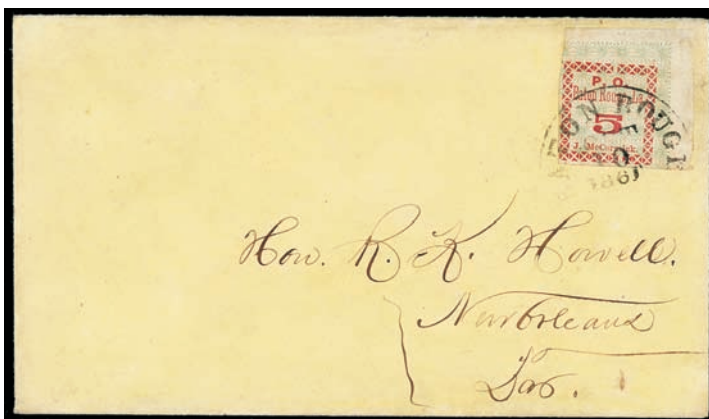 P. O.
Baton Rouge, La.
5
J. McCormick.
BATON ROUGE
10
1861
Hon. R. K. Howell.
New Orleans
La.